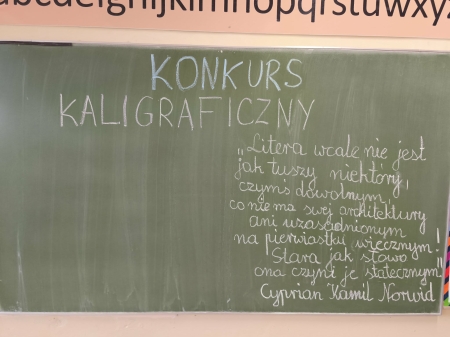 abcdefghijklmnopqrstuwxyz
KONKURS
KALIGRAFICZNY
„Litera wcale nie jest
jak tuszy niektóry,
czymś dowolnym,
co nie ma swej architektury
ani uzasadnionym
na pierwiastku wiecznym!
Stara jak słowo
ona czyni je statecznym"
Cyprian Kamil Norwid